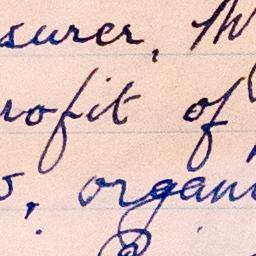 surer, Th
rofit of
s, organi